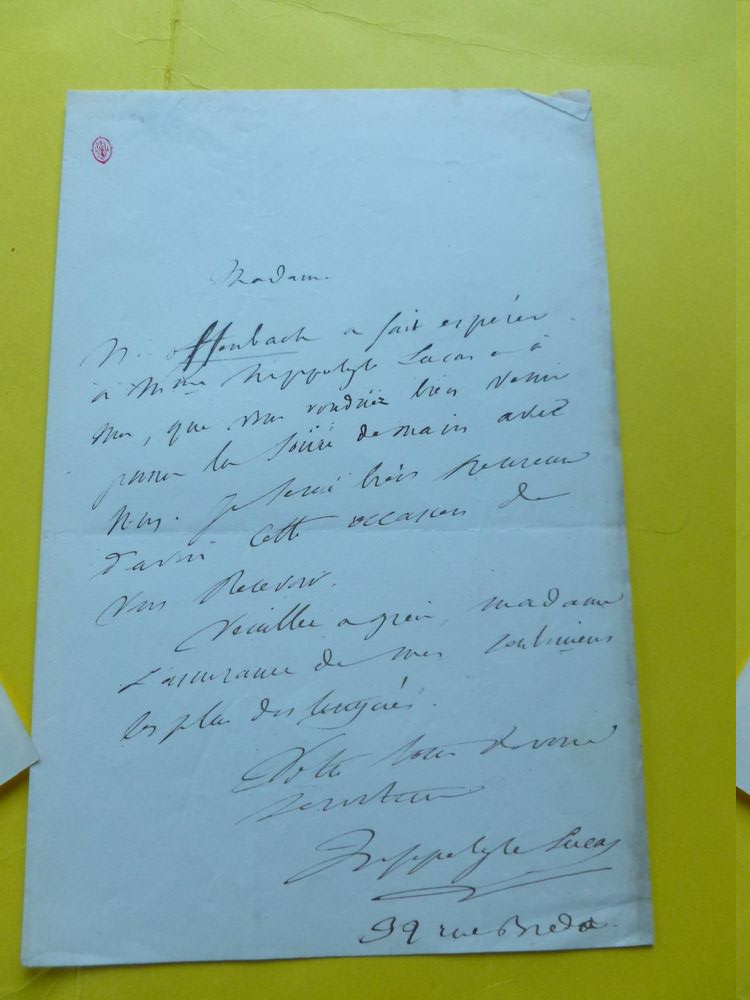 Madame
M. offenbach a fait espérer
à Mme hippolyte Lucas et à
moi, que vous voudriez bien venir
passer la soirée demain avec
nous. je serai bien heureux
d'avoir cette occasion de
vous recevoir.
Veuillez agréer, madame
l'assurance de mes sentimens
les plus distingués.
Votre tout dévoué
serviteur
hippolyte Lucas
39 rue Breda